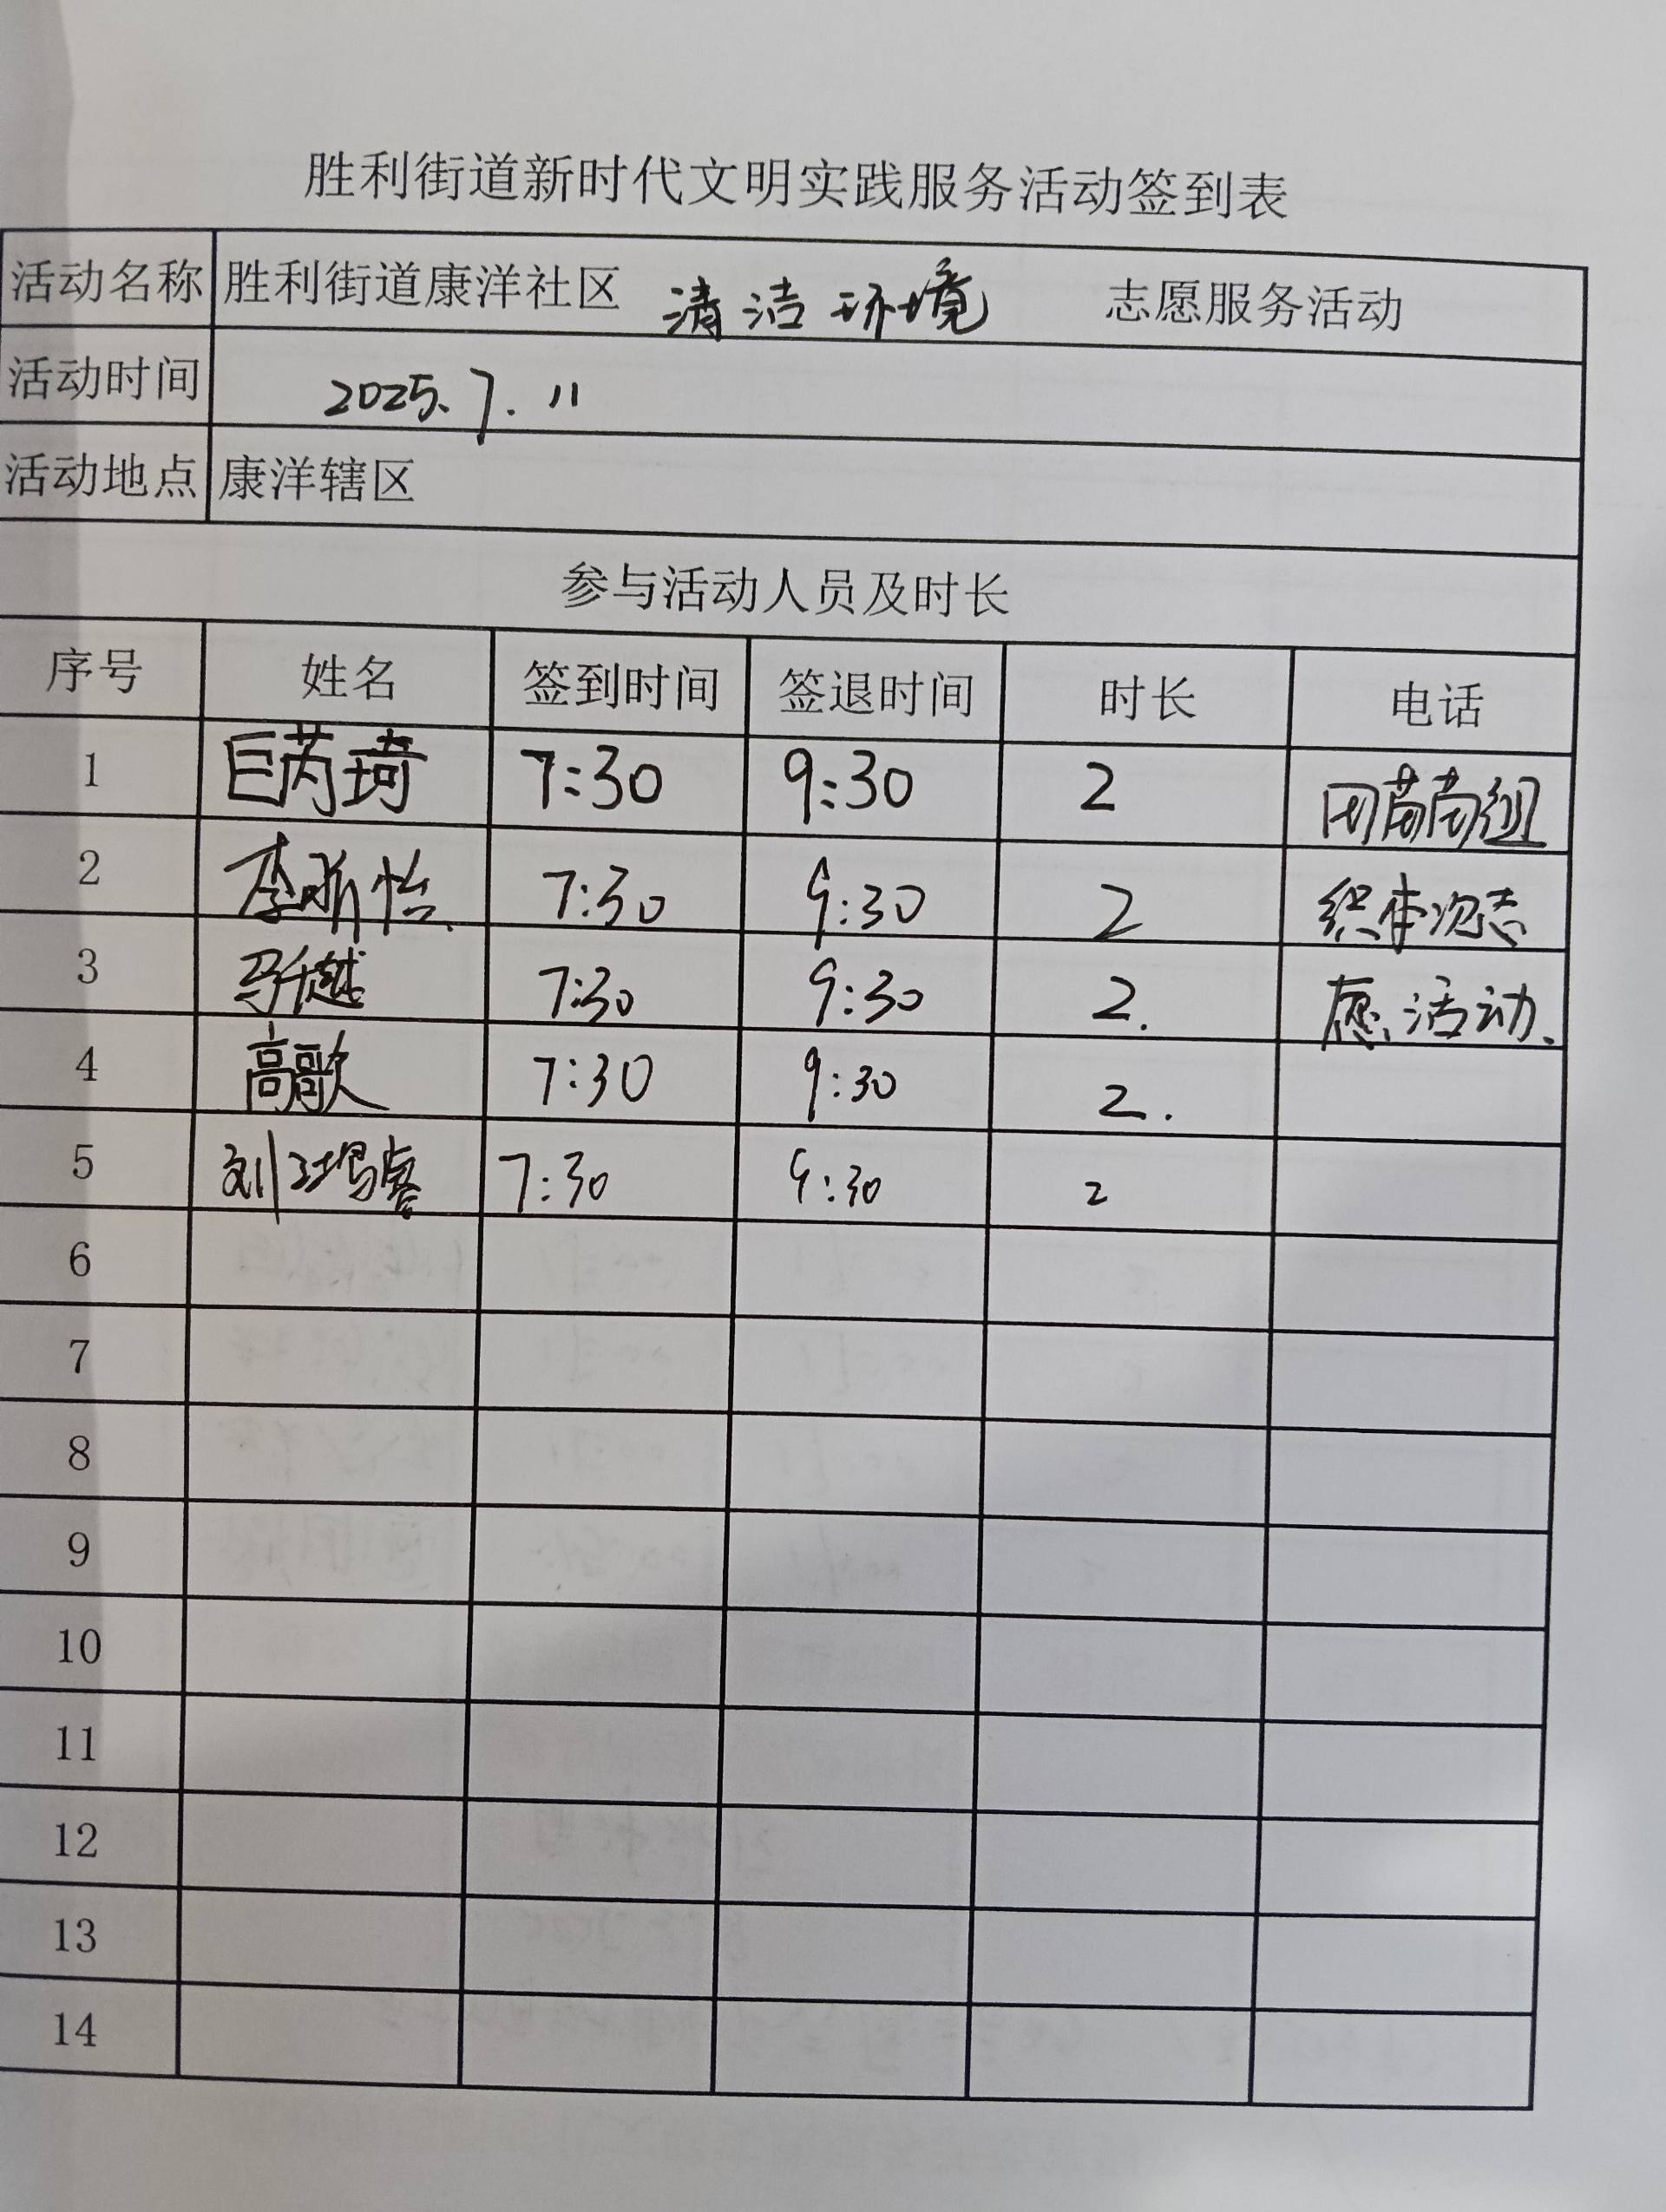 胜利街道新时代文明实践服务活动签到表
活动名称 胜利街道康洋社区 清洁环境 志愿服务活动
活动时间 2025.7.11
活动地点 康洋辖区
参与活动人员及时长
序号 姓名 签到时间 签退时间 时长 电话
1 巨芮琦 7:30 9:30 2 田茼茼组
2 李昕怡 7:30 9:30 2 织本次志
3 马千越 7:30 9:30 2. 愿活动、
4 高歌 7:30 9:30 2.
5 刘 7:30 9:30 2
6
7
8
9
10
11
12
13
14